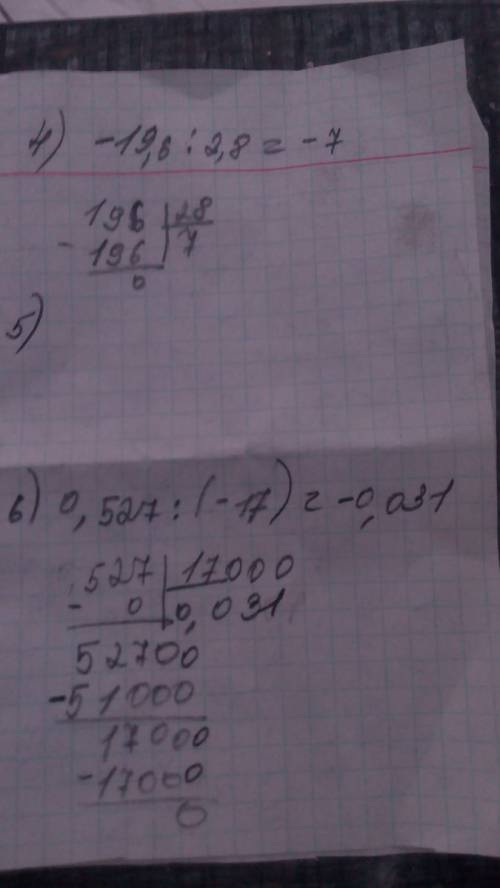 4) -19,6 : 2,8 = -7
196 28
- 196 7
0
5)
6) 0,527 : (-17) = -0,031
527 17000
- 0 0,031
52700
-51000
17000
-17000
0